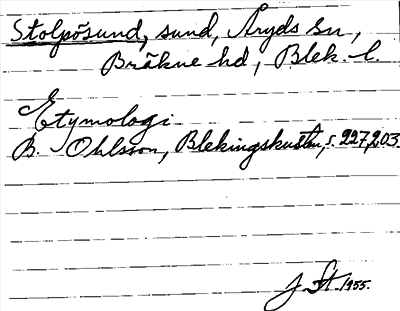 Stolpösund, sund, Åryds sn,
Bräkne hd, Blek. l.
Etymologi
B. Ohlsson, Blekingskusten, s. 227, 203.
J. St. 1955.